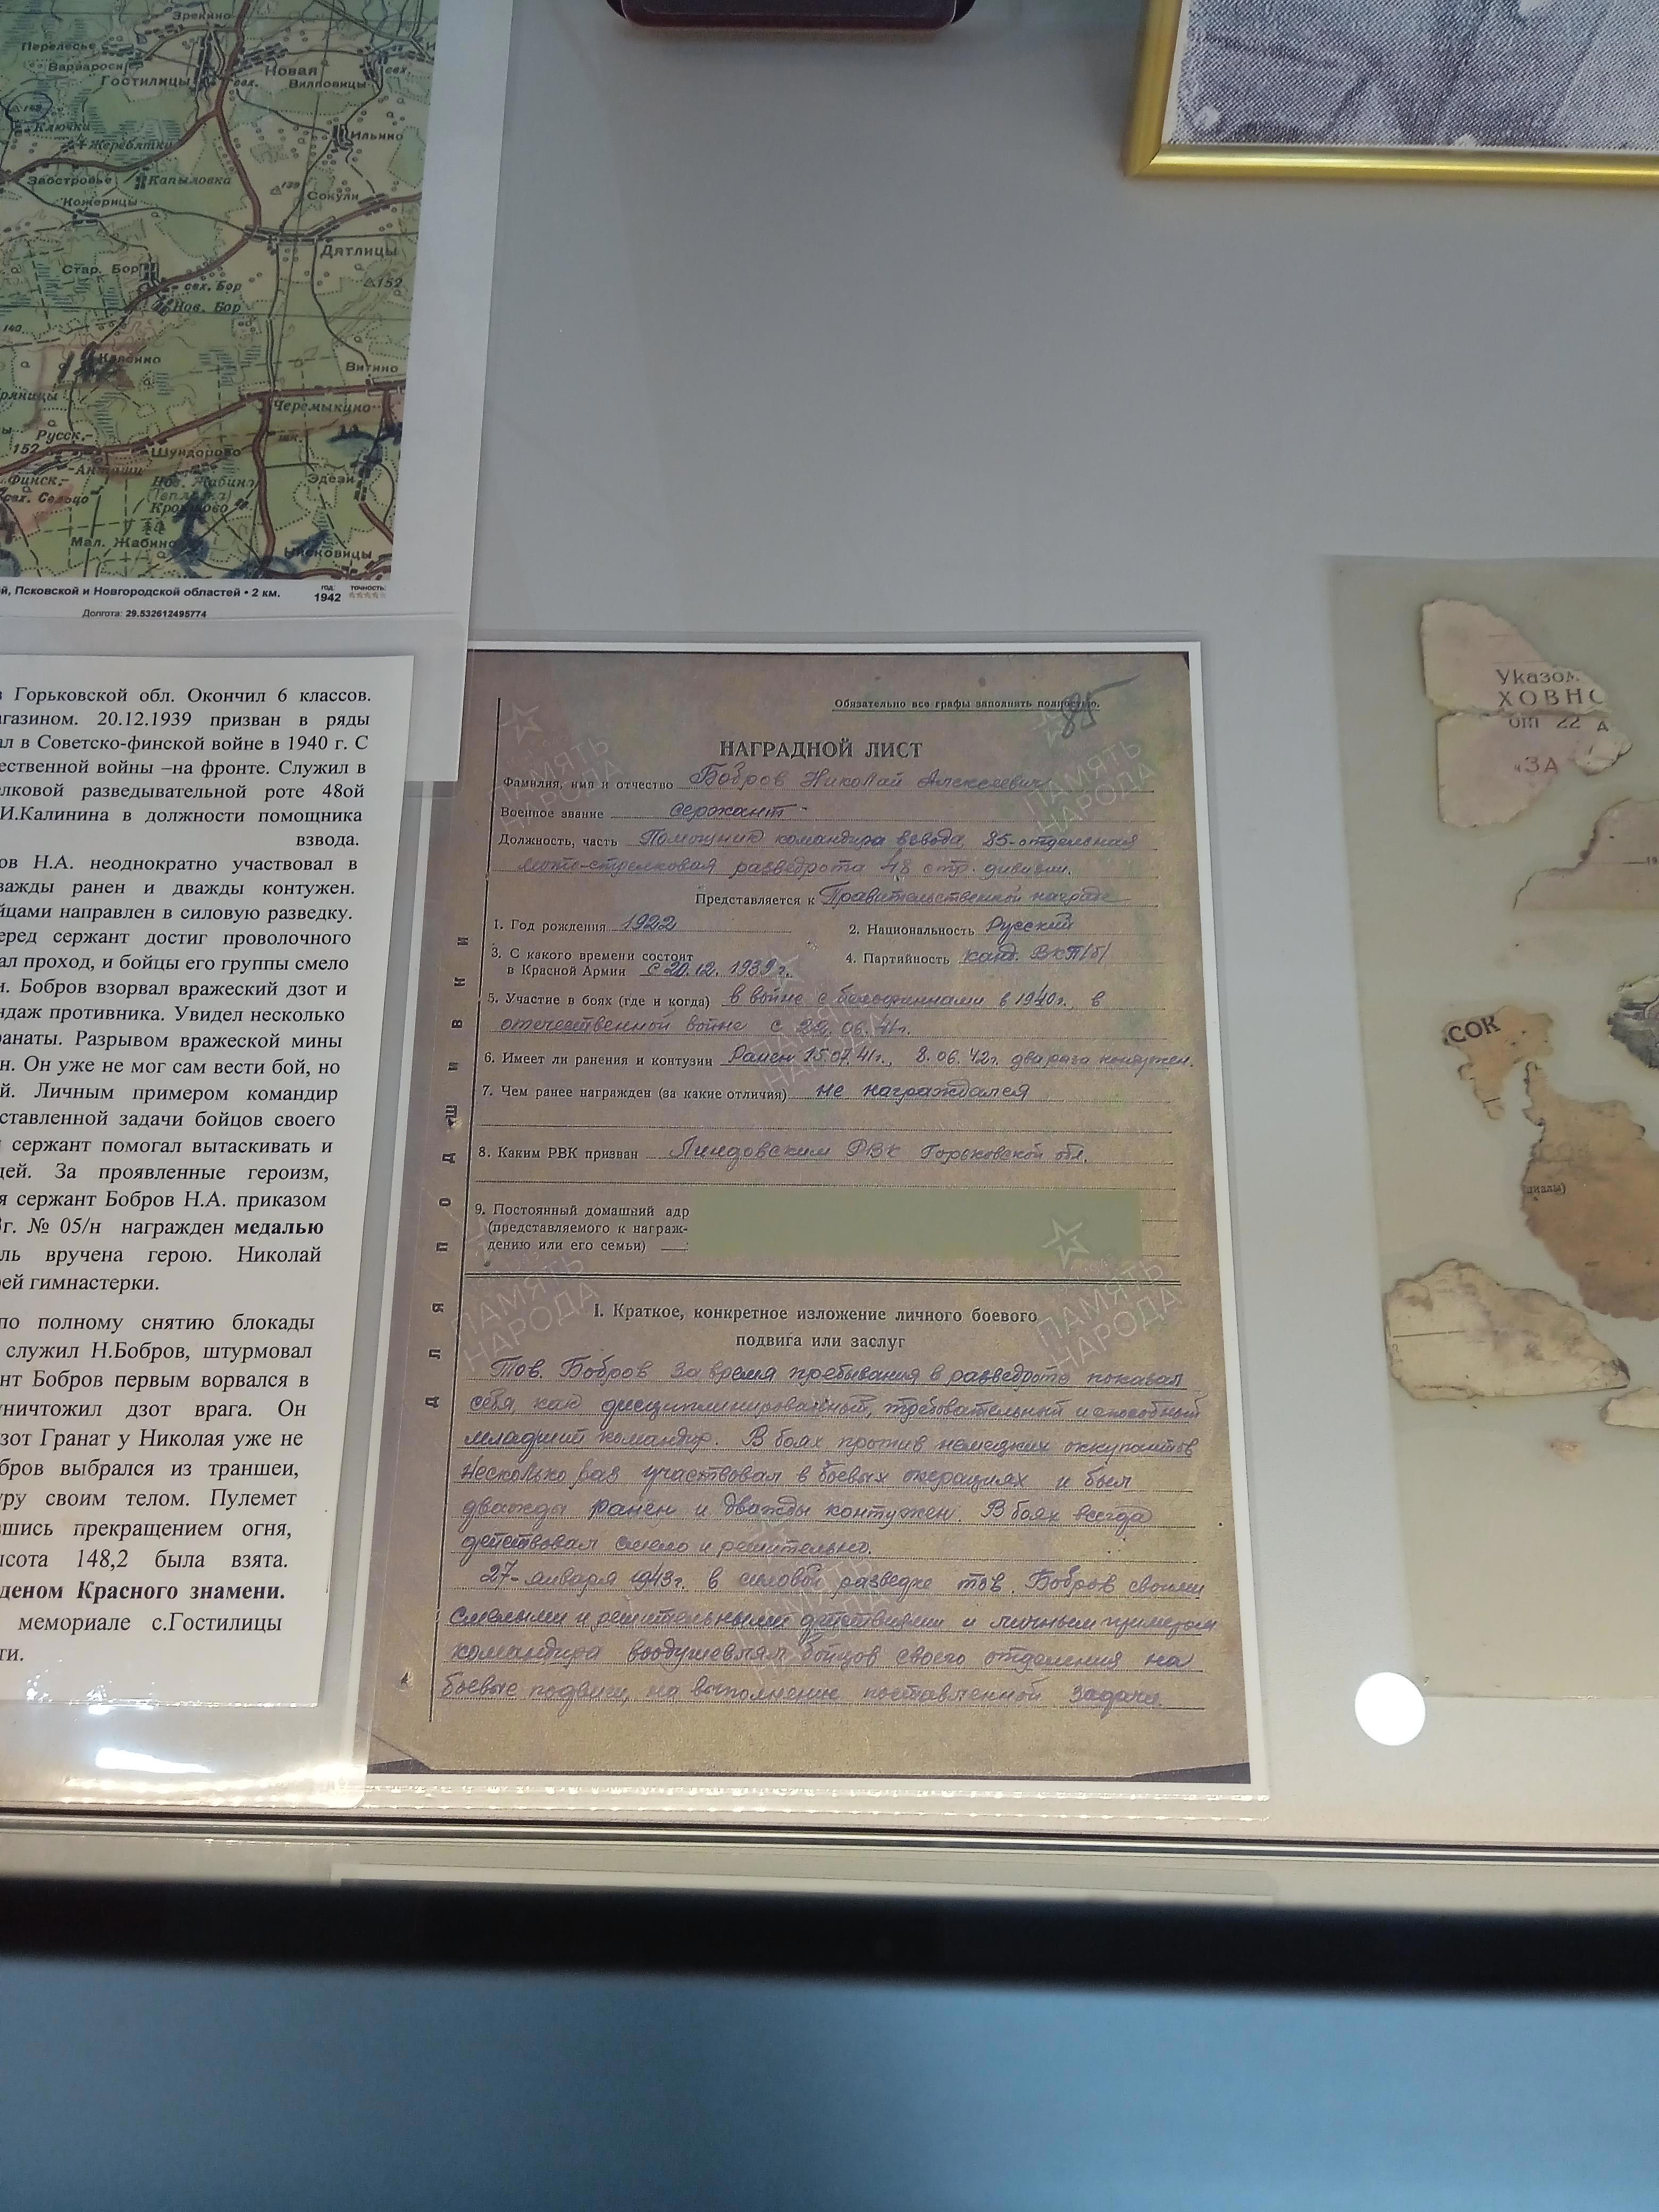 Зрекино
Перелесье
Варвароси
Гостилицы
Новая
свх.
Вилповицы
Ключки
Жеребятки
Ильино
Заостровье
Капыловка
139
Кожерицы
Сокули
Дятлицы
Стар. Бор
свх. Бор
152
Нов. Бор
140
Витино
Черемыкино
Русск.-
152
Анташи
Шундорово
Финск.-
свх. Сельцо
Эдези
Мал. Жабино
й, Псковской и Новгородской областей • 2 км.
год
1942
точность:
Долгота: 29.532612495774
в Горьковской обл. Окончил 6 классов.
агазином. 20.12.1939 призван в ряды
ал в Советско-финской войне в 1940 г. С
ественной войны –на фронте. Служил в
елковой разведывательной роте 48ой
И.Калинина в должности помощника
взвода.
ов Н.А. неоднократно участвовал в
важды ранен и дважды контужен.
йцами направлен в силовую разведку.
еред сержант достиг проволочного
ал проход, и бойцы его группы смело
и. Бобров взорвал вражеский дзот и
ндаж противника. Увидел несколько
ранаты. Разрывом вражеской мины
н. Он уже не мог сам вести бой, но
й. Личным примером командир
ставленной задачи бойцов своего
сержант помогал вытаскивать и
дей. За проявленные героизм,
я сержант Бобров Н.А. приказом
3г. № 05/н награжден медалью
ль вручена герою. Николай
ей гимнастерки.
по полному снятию блокады
служил Н.Бобров, штурмовал
нт Бобров первым ворвался в
уничтожил дзот врага. Он
зот Гранат у Николая уже не
бров выбрался из траншеи,
уру своим телом. Пулемет
вшись прекращением огня,
ысота 148,2 была взята.
деном Красного знамени.
мемориале с.Гостилицы
ти.
Обязательно все графы заполнять полностью.
85
НАГРАДНОЙ ЛИСТ
Фамилия, имя и отчество Бобров Николай Алексеевич
Военное звание сержант
Должность, часть Помощник командира взвода, 85-отдельная
мото-стрелковая разведрота 48 стр. дивизии.
Представляется к Правительственной награде
1. Год рождения 1922
2. Национальность Русский
3. С какого времени состоит
в Красной Армии с 20.12.1939 г.
4. Партийность канд. ВКП/б/
5. Участие в боях (где и когда) в войне с белофиннами в 1940г., в
отечественной войне с 22.06.41г.
6. Имеет ли ранения и контузии Ранен 15.07.41г., 8.06.42г. два раза контужен.
7. Чем ранее награжден (за какие отличия) не награждался
8. Каким РВК призван Линдовским РВК Горьковской обл.
9. Постоянный домашний адр
(представляемого к награж-
дению или его семьи)
I. Краткое, конкретное изложение личного боевого
подвига или заслуг
Тов. Бобров за время пребывания в разведроте показал
себя, как дисциплинированный, требовательный и способный
младший командир. В боях против немецких оккупантов
несколько раз участвовал в боевых операциях и был
дважды ранен и дважды контужен. В боях всегда
действовал смело и решительно.
27-января 1943г. в силовой разведке тов. Бобров своими
смелыми и решительными действиями и личным примером
командира воодушевлял бойцов своего отделения на
боевые подвиги, на выполнение поставленной задачи.
ДЛЯ ПОДШИВКИ
ПАМЯТЬ
НАРОДА
Указом
ХОВНО
от 22 А
«ЗА
СОК